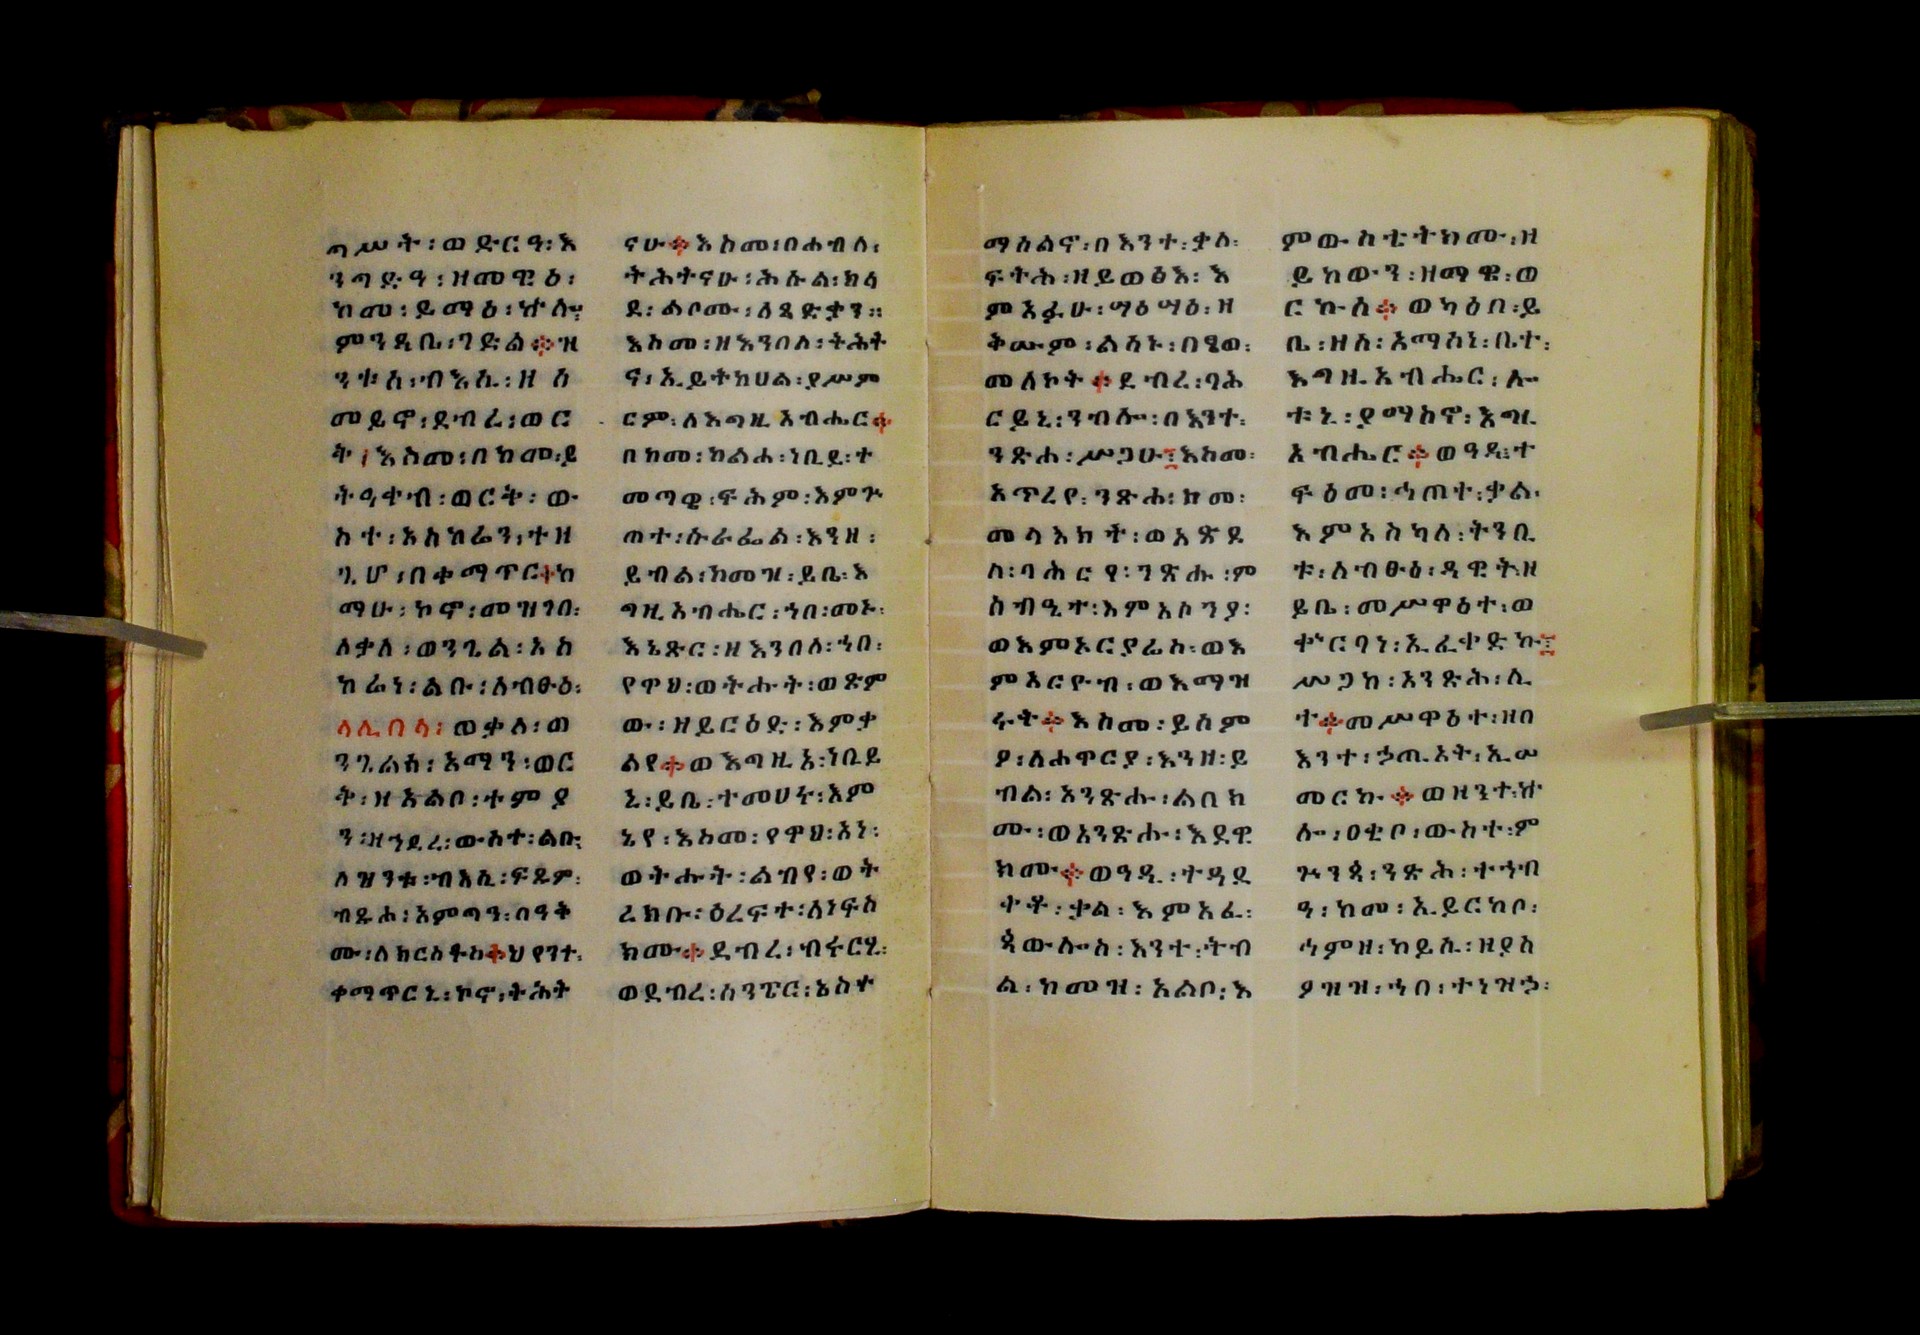 ጣሥት፡ወድርዓ፡እ
ንጣድዓ፡ዘመዊዕ፡
ከመ፡ይማዕ፡ሶለ፡
ምንዳቤ፡ገድል፨ዝ
ንቱስ፡ብእሲ፡ዘስ
መይዎ፡ደብረ፡ወር
ቅ፡እስመ፡በከመ፡ይ
ትዓቀብ፡ወርቅ፡ው
ስተ፡አስከሬን፡ተዘ
ጊሆ፡በቀማጥር፨ከ
ማሁ፡ኮኖ፡መዝገበ፡
ለቃለ፡ወንጌል፡አስ
ከሬነ፡ልቡ፡ለብፁዕ፡
ላሊበላ፡ወቃለ፡ወ
ንጌልስ፡አማን፡ወር
ቅ፡ዘአልቦ፡ተምያ
ን፡ዘኀደረ፡ውስተ፡ልቡ፡
ለዝንቱ፡ብእሲ፡ፍጹም፡
ብጹሕ፡እምጣን፡በዓቅ
ሙ፡ለክርስቶስ፨ህየንተ፡
ቀማጥርኒ፡ኮኖ፡ትሕት
ናሁ፨እስመ፡በሐብለ፡
ትሕትናሁ፡ሕሱል፡ክሳ
ደ፡ልቦሙ፡ለጻድቃን።
እስመ፡ዘእንበለ፡ትሕት
ና፡ኢይትከሀል፡ያሥም
ርም፡ለእግዚአብሔር፨
በከመ፡ከልሐ፡ነቢይ፡ተ
መጣዊ፡ፍሕም፡እምጕ
ጠተ፡ሱራፌል፡እንዘ፡
ይብል፡ከመዝ፡ይቤ፡እ
ግዚአብሔር፡ኀበ፡መኑ፡
እኔጽር፡ዘእንበለ፡ኀበ፡
የዋህ፡ወትሑት፡ወጽም
ው፡ዘይርዕድ፡እምቃ
ልየ፨ወእግዚአ፡ነቢይ
ኒ፡ይቤ፡ተመሀሩ፡እም
ኔየ፡እስመ፡የዋህ፡አነ፡
ወትሑት፡ልብየ፡ወት
ረክቡ፡ዕረፍተ፡ለነፍስ
ክሙ፨ደብረ፡ብሩርሂ፡
ወደብረ፡ስንፔር፡ኔስተ
ማስልኖ፡በእንተ፡ቃለ፡
ፍትሕ፡ዘይወፅእ፡እ
ምአፉሁ፡ሣዕሣዕ፡ዘ
ቅሡም፡ልሳኑ፡በፄወ፡
መለኮት፨ደብረ፡ባሕ
ርይኒ፡ንብሎ፡በእንተ፡
ንጽሐ፡ሥጋሁ፤እስመ፡
አጥረየ፡ንጽሐ፡ከመ፡
መላእክት፡ወአጽደ
ለ፡ባሕርየ፡ንጽሑ፡ም
ስብዒተ፡እምአስንያ፡
ወእምኦርያሬስ፡ወእ
ምእርዮብ፡ወእማዝ
ሩት፨እስመ፡ይስም
ያ፡ለሐዋርያ፡እንዘ፡ይ
ብል፡አንጽሑ፡ልበክ
ሙ፡ወአንጽሑ፡እደዊ
ክሙ፨ወዓዲ፡ተዳደ
ቀቶ፡ቃል፡እምአፈ፡
ጳውሎስ፡እንተ፡ትብ
ል፡ከመዝ፡አልቦ፡እ
ምውስቴትክሙ፡ዘ
ይከውን፡ዘማዊ፡ወ
ርኩስ፨ወካዕበ፡ይ
ቤ፡ዘሰ፡አማሰነ፡ቤተ፡
እግዚአብሔር፡ሎ
ቱኒ፡ያማስኖ፡እግዚ
አብሔር፨ወዓዲ፡ተ
ፍዕመ፡ኅጠተ፡ቃል፡
እምአስካለ፡ትንቢ
ቱ፡ለብፁዕ፡ዳዊት፡ዘ
ይቤ፡መሥዋዕተ፡ወ
ቍርባነ፡ኢፈቀድኩ፤
ሥጋከ፡አንጽሕ፡ሊ
ተ፨መሥዋዕተ፡ዘበ
እንተ፡ኃጢአት፡ኢሠ
መርኩ፨ወዘንተ፡ሶ
ሎ፡ዐቂቦ፡ውስተ፡ም
ጕንጳ፡ንጽሕ፡ተኀብ
ዓ፡ከመ፡ኢይርከቦ፡
ኅምዘ፡ከይሲ፡ዘያስ
ያዝዝ፡ኀበ፡ተነዝኃ፡